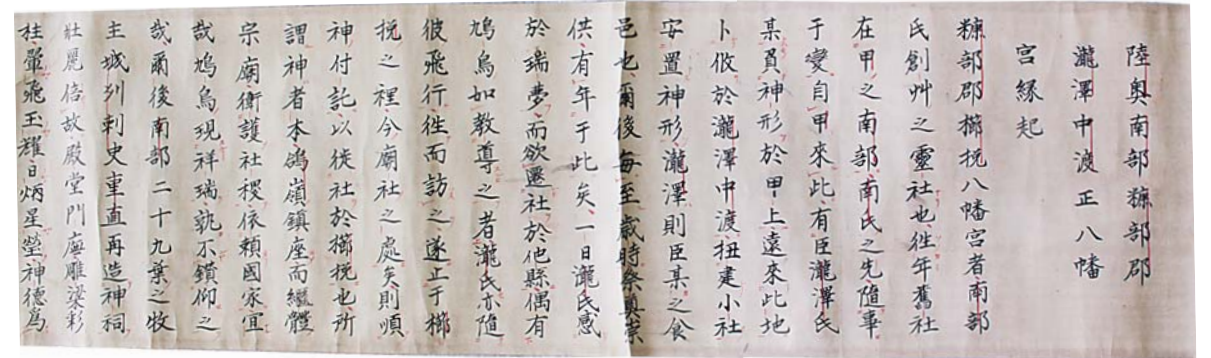 陸奥南部糠部郡
瀧澤中渡正八幡
宮縁起
糠部郡櫛挽八幡宮者南部
氏創艸之靈社也徃年舊社
在甲之南部南氏之先隨事
于變自甲來此有臣瀧澤氏
某負神形於甲上遠來此地
卜攸於瀧澤中渡扭建小社
安置神形瀧澤則臣某之食
邑也爾後每至歳時祭奠崇
供有年于此矣一日瀧氏感
於瑞夢而欲遷社於他縣偶有
鳩鳥如教導之者瀧氏亦隨
彼飛行徃而訪之遂止于櫛
挽之裡今廟社之處矣則順
神付託以徙社於櫛挽也所
謂神者本鴿嶺鎮座而繼體
宗廟衛護社稷依賴國家宜
哉鳩鳥現祥瑞孰不鑚仰之
哉爾後南部二十九葉之牧
主城刕刺史重直再造神祠
壯麗倍故殿堂門廡雕梁彩
桂翬飛玉耀日炳星瑩神德爲